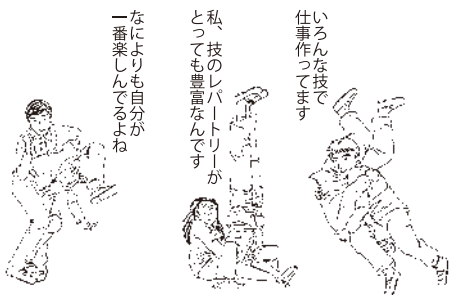 いろんな技で
仕事作ってます
私、技のレパートリーが
とっても豊富なんです
なによりも自分が
一番楽しんでるよね